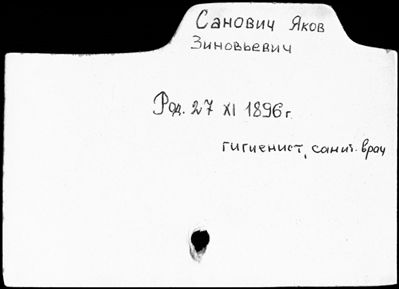 Санович Яков
Зиновьевич
Род. 27 XI 1896 г.
гигиенист, санит. врач